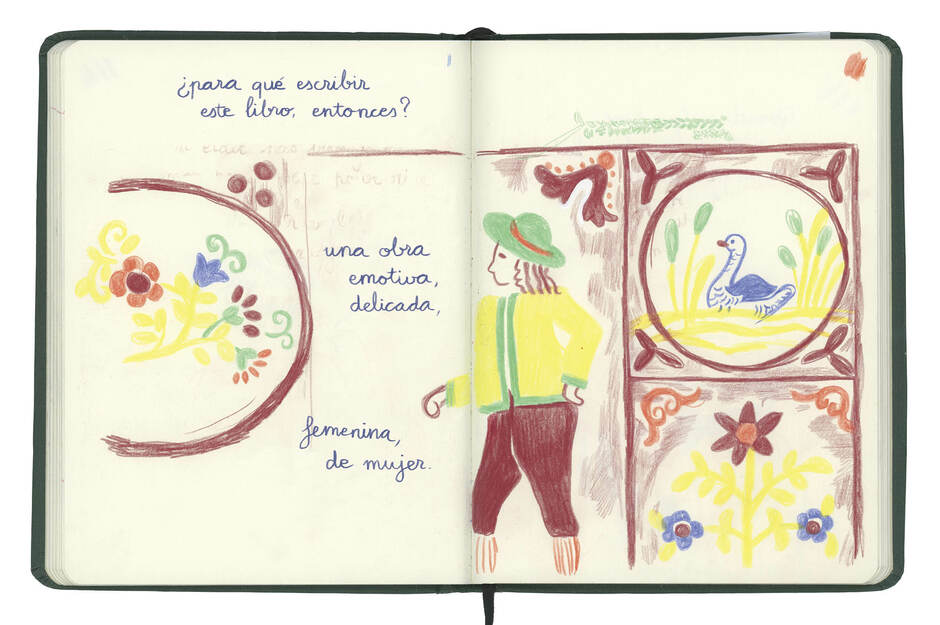 ¿para qué escribir
este libro, entonces?
una obra
emotiva,
delicada,
femenina,
de mujer.